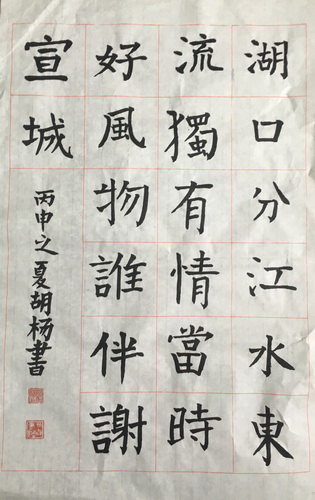 湖口分江水東
流獨有情當時
好風物誰伴謝
宣城
丙申之夏胡杨書